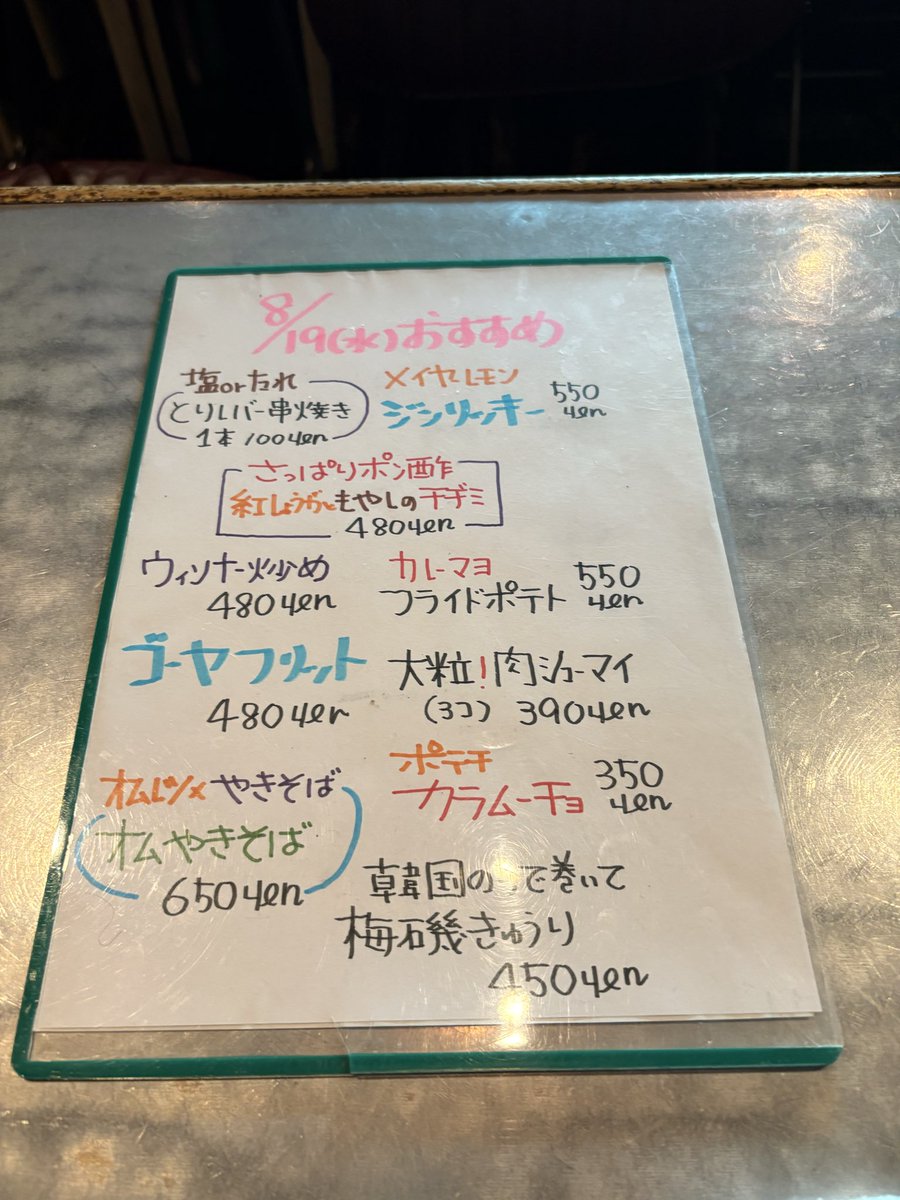 8/19(水)おすすめ
塩orたれ
とりレバー串焼き
1本100yen
メイヤーレモン
ジンリッキー
550
yen
さっぱりポン酢
紅しょうがともやしのチヂミ
480yen
ウィンナー炒め
480yen
カレーマヨ
フライドポテト
550
yen
ゴーヤフリット
480yen
大粒!肉シューマイ
(3コ) 390yen
オムレツ×やきそば
オムやきそば
650yen
ポテチ
カラムーチョ
350
yen
韓国の で巻いて
梅磯きゅうり
450yen